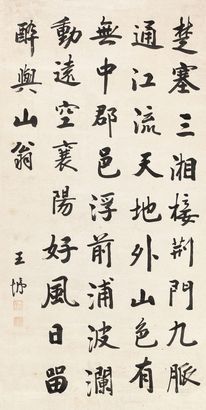 楚塞三湘接荊門九脈
通江流天地外山色有
無中郡邑浮前浦波瀾
動遠空襄陽好風日留
醉與山翁
王